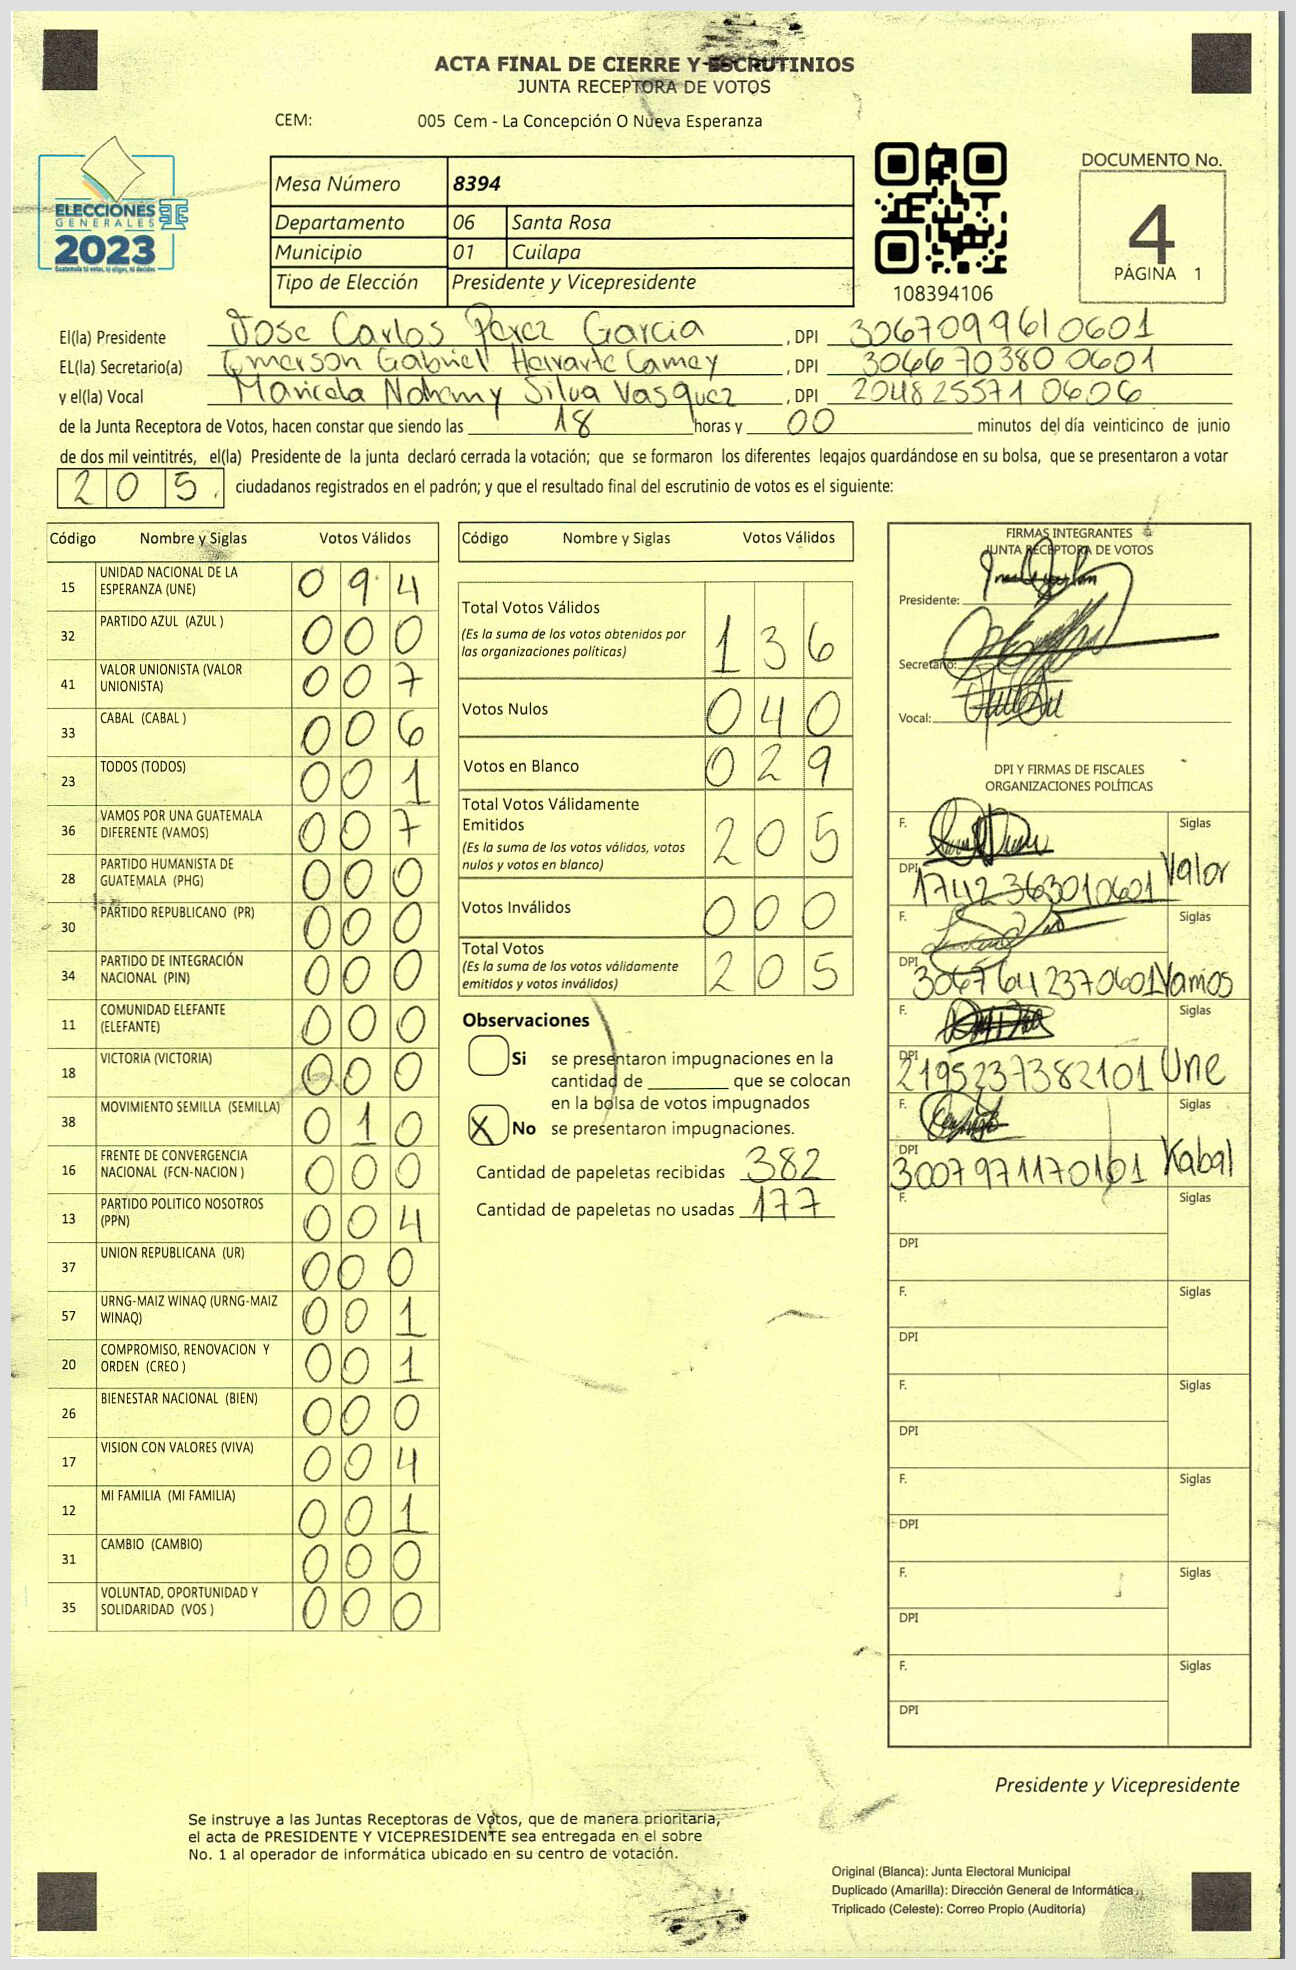 ACTA FINAL DE CIERRE Y ESCRUTINIOS
JUNTA RECEPTORA DE VOTOS
CEM: 005 Cem - La Concepción O Nueva Esperanza
ELECCIONES
GENERALES
2023
Guatemala tú votas, tú eliges, tú decides
Mesa Número 8394
Departamento 06 Santa Rosa
Municipio 01 Cuilapa
Tipo de Elección Presidente y Vicepresidente
108394106
DOCUMENTO No.
4
PÁGINA 1
El(la) Presidente Jose Carlos Perez Garcia, DPI 3067099610601
EL(la) Secretario(a) Emerson Gabriel Herrarte Camey, DPI 3066703800601
y el(la) Vocal Maricela Nohemy Silva Vasquez, DPI 2048255710606
de la Junta Receptora de Votos, hacen constar que siendo las 18 horas y 00 minutos del día veinticinco de junio
de dos mil veintitrés, el(la) Presidente de la junta declaró cerrada la votación; que se formaron los diferentes legajos guardándose en su bolsa, que se presentaron a votar
205 ciudadanos registrados en el padrón; y que el resultado final del escrutinio de votos es el siguiente:
Código Nombre y Siglas Votos Válidos
15 UNIDAD NACIONAL DE LA ESPERANZA (UNE) 094
32 PARTIDO AZUL (AZUL ) 000
41 VALOR UNIONISTA (VALOR UNIONISTA) 007
33 CABAL (CABAL ) 006
23 TODOS (TODOS) 001
36 VAMOS POR UNA GUATEMALA DIFERENTE (VAMOS) 007
28 PARTIDO HUMANISTA DE GUATEMALA (PHG) 000
30 PARTIDO REPUBLICANO (PR) 000
34 PARTIDO DE INTEGRACIÓN NACIONAL (PIN) 000
11 COMUNIDAD ELEFANTE (ELEFANTE) 000
18 VICTORIA (VICTORIA) 000
38 MOVIMIENTO SEMILLA (SEMILLA) 010
16 FRENTE DE CONVERGENCIA NACIONAL (FCN-NACION ) 000
13 PARTIDO POLITICO NOSOTROS (PPN) 004
37 UNION REPUBLICANA (UR) 000
57 URNG-MAIZ WINAQ (URNG-MAIZ WINAQ) 001
20 COMPROMISO, RENOVACION Y ORDEN (CREO ) 001
26 BIENESTAR NACIONAL (BIEN) 000
17 VISION CON VALORES (VIVA) 004
12 MI FAMILIA (MI FAMILIA) 001
31 CAMBIO (CAMBIO) 000
35 VOLUNTAD, OPORTUNIDAD Y SOLIDARIDAD (VOS ) 000
Código Nombre y Siglas Votos Válidos
Total Votos Válidos 136
(Es la suma de los votos obtenidos por
las organizaciones políticas)
Votos Nulos 040
Votos en Blanco 029
Total Votos Válidamente
Emitidos 205
(Es la suma de los votos válidos, votos
nulos y votos en blanco)
Votos Inválidos 000
Total Votos 205
(Es la suma de los votos válidamente
emitidos y votos inválidos)
Observaciones
Si se presentaron impugnaciones en la
cantidad de ________ que se colocan
en la bolsa de votos impugnados
X No se presentaron impugnaciones.
Cantidad de papeletas recibidas 382
Cantidad de papeletas no usadas 177
FIRMAS INTEGRANTES
JUNTA RECEPTORA DE VOTOS
Presidente:
Secretario:
Vocal:
DPI Y FIRMAS DE FISCALES
ORGANIZACIONES POLÍTICAS
F. Siglas
DPI 1742363010601 Valor
F. Siglas
DPI 30676412370601 Vamos
F. Siglas
DPI 2195237382101 Une
F. Siglas
DPI 3007971170101 Kabal
F. Siglas
DPI
F. Siglas
DPI
F. Siglas
DPI
F. Siglas
DPI
F. Siglas
DPI
F. Siglas
DPI
Presidente y Vicepresidente
Se instruye a las Juntas Receptoras de Votos, que de manera prioritaria,
el acta de PRESIDENTE Y VICEPRESIDENTE sea entregada en el sobre
No. 1 al operador de informática ubicado en su centro de votación.
Original (Blanca): Junta Electoral Municipal
Duplicado (Amarilla): Dirección General de Informática
Triplicado (Celeste): Correo Propio (Auditoría)